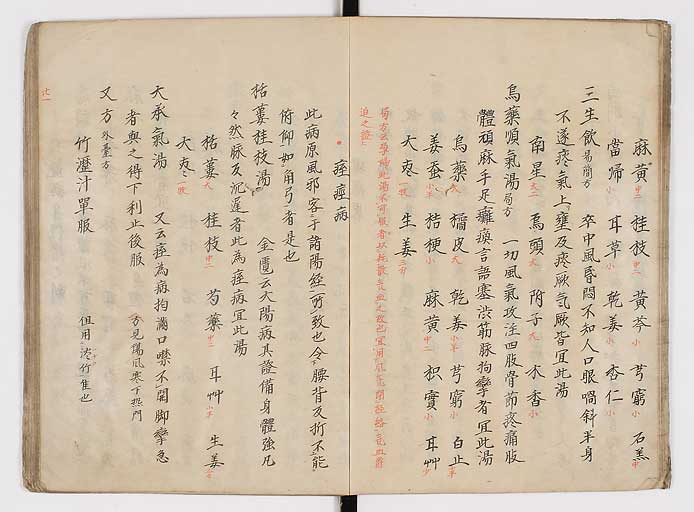 麻黄中二 桂枝中二 黄芩小 芎窮小 石羔中
當帰小 耳草小 乾姜小 杏仁小
三生飲易簡方 卒中風昏悶不知人口眼喎斜半身
不遂疼氣上壅及疼厥氣厥皆宜此湯
南星大二 烏頭大 附子大 木香小
烏藥順氣湯局方 一切風氣攻注四肢骨節疼痛肢
體頑麻手足癱瘓言語蹇渋筋脉拘攣者宜此湯
烏藥大 橘皮大 乾姜小半 芎窮小 白止小半
姜蚕小半 桔梗小 麻黄中二 枳實小 耳艸少
大枣一枚 生姜三分
局方云孕婦此湯不可服者以
迫之證
痙痓病
此病原風邪客于諸陽經所致也令腰背反折不能
俯仰如角弓者是也
栝蔞桂枝湯 金匱云太陽病其證備身體強几
々然脉反沉遲者此為痓病宜此湯
栝蔞大 桂枝中二 芍藥中二 耳艸小半 生姜三分
大枣一枚
大承氣湯 又云痓為病拘滿口噤不開脚攣急
者與之得下利止後服 方見傷風寒下
又方外臺方
竹瀝汁單服 但用淡竹隹也
廿一